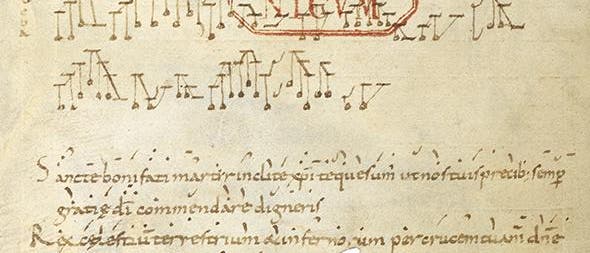 NICVM
Sancte bonifati martir inclite xp̄i te quesum̄ ut nos tuis precib; semp̄
gratię dī commendare digneris
Rex cęlestiū terrestrium & infernorum per crucem tuam dn̄e